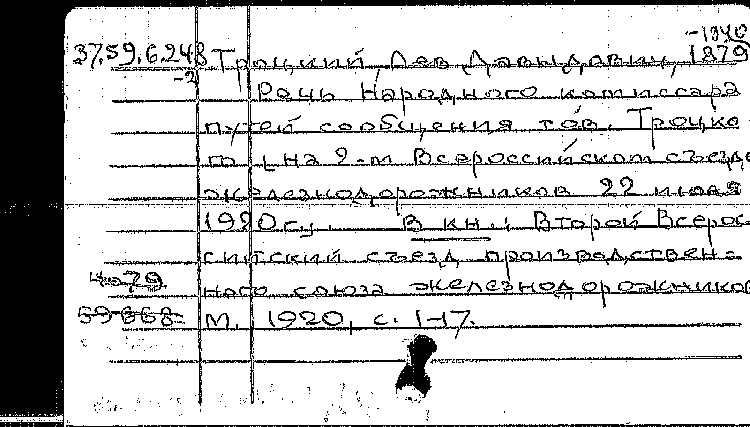 -1940
37.59.6.248 Троцкий, Лев Давыдович, 1879
-2
Речь Народного комиссара
путей сообщения тов. Троцко-
го [на 2-м Всероссийском съезде
железнодорожников 22 июля
1920 г.]. В кн.: Второй Всерос-
сийский съезд производствен-
79
ного союза железнодорожников
59-668
М. 1920, с. 1-17.